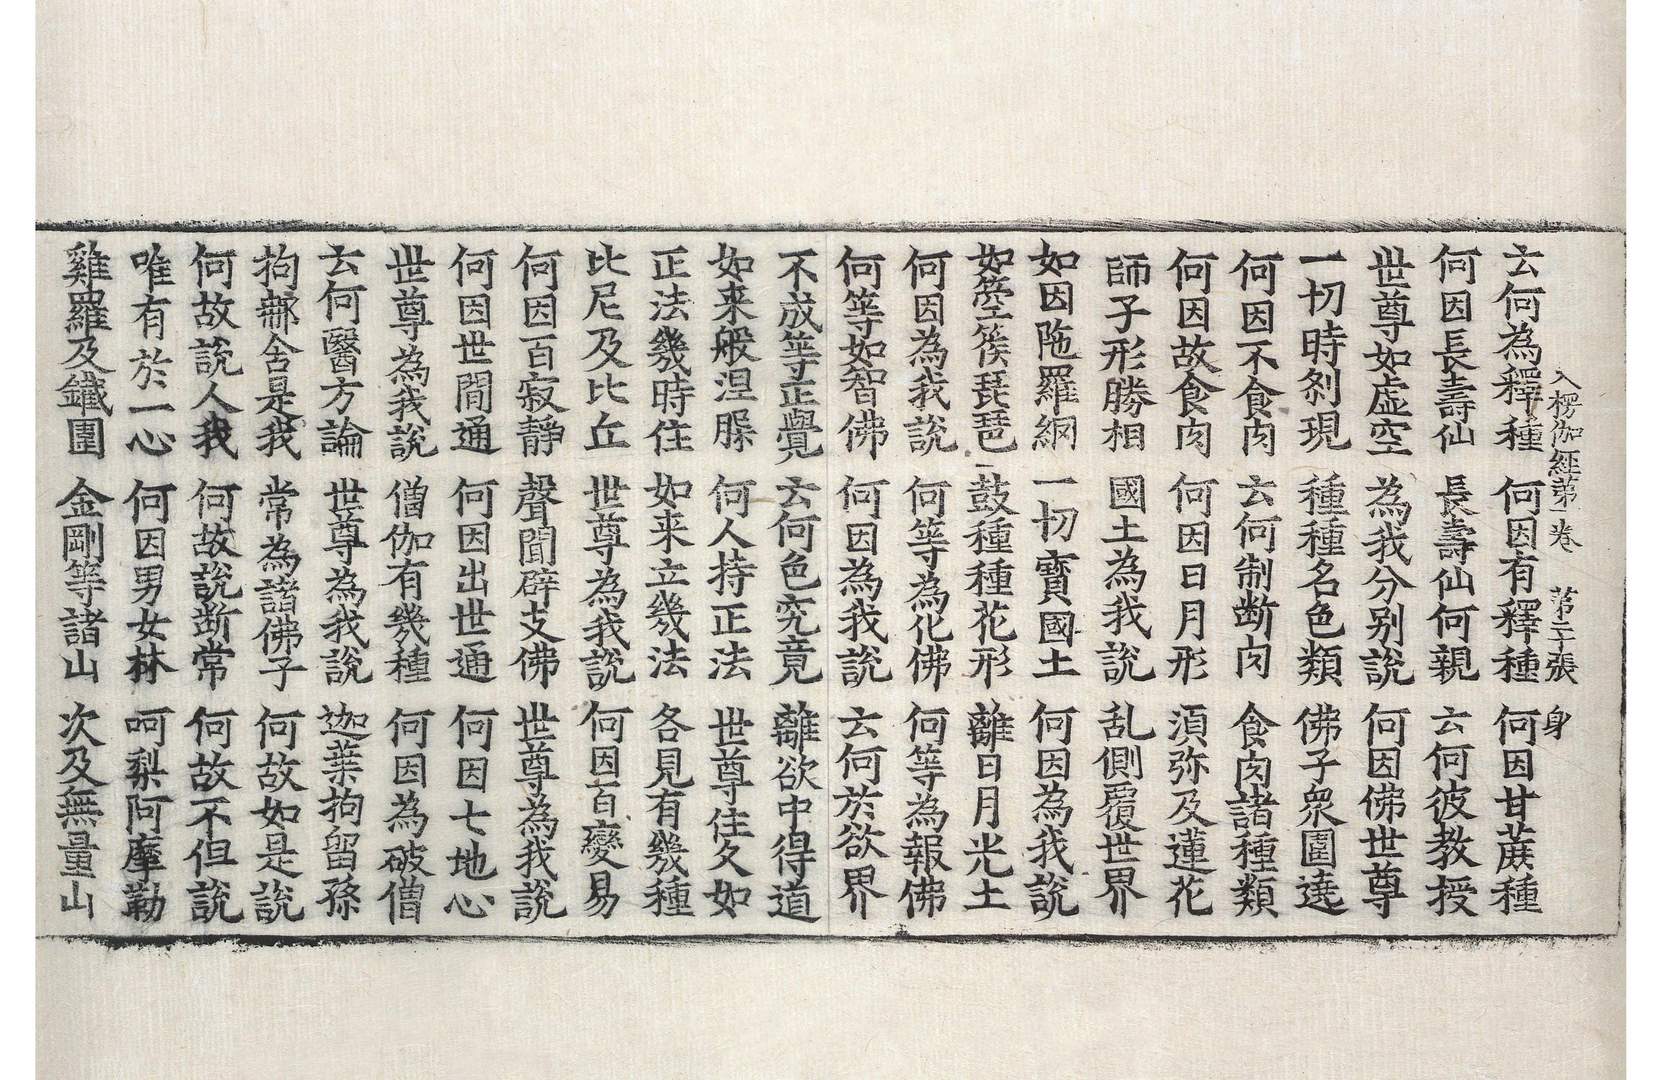 入楞伽經第一卷 第二十張 身
云何為釋種 何因有釋種 何因甘蔗種
何因長壽仙 長壽仙何親 云何彼教授
世尊如虛空 為我分別說 何因佛世尊
一切時剎現 種種名色類 佛子眾圍遶
何因不食肉 云何制斷肉 食肉諸種類
何因故食肉 何因日月形 須弥及蓮花
師子形勝相 國土為我說 乱側覆世界
如因陁羅網 一切寶國土 何因為我說
如箜篌琵琶 鼓種種花形 離日月光土
何因為我說 何等為化佛 何等為報佛
何等如智佛 何因為我說 云何於欲界
不成等正覺 云何色究竟 離欲中得道
如来般涅槃 何人持正法 世尊住久如
正法幾時住 如来立幾法 各見有幾種
比尼及比丘 世尊為我說 何因百變易
何因百寂靜 聲聞辟支佛 世尊為我說
何因世間通 何因出世通 何因七地心
世尊為我說 僧伽有幾種 何因為破僧
云何醫方論 世尊為我說 迦葉拘留孫
拘鄰舍是我 常為諸佛子 何故如是說
何故說人我 何故說断常 何故不但說
唯有於一心 何因男女林 呵梨阿摩勒
雞羅及鐵圍 金剛等諸山 次及無量山